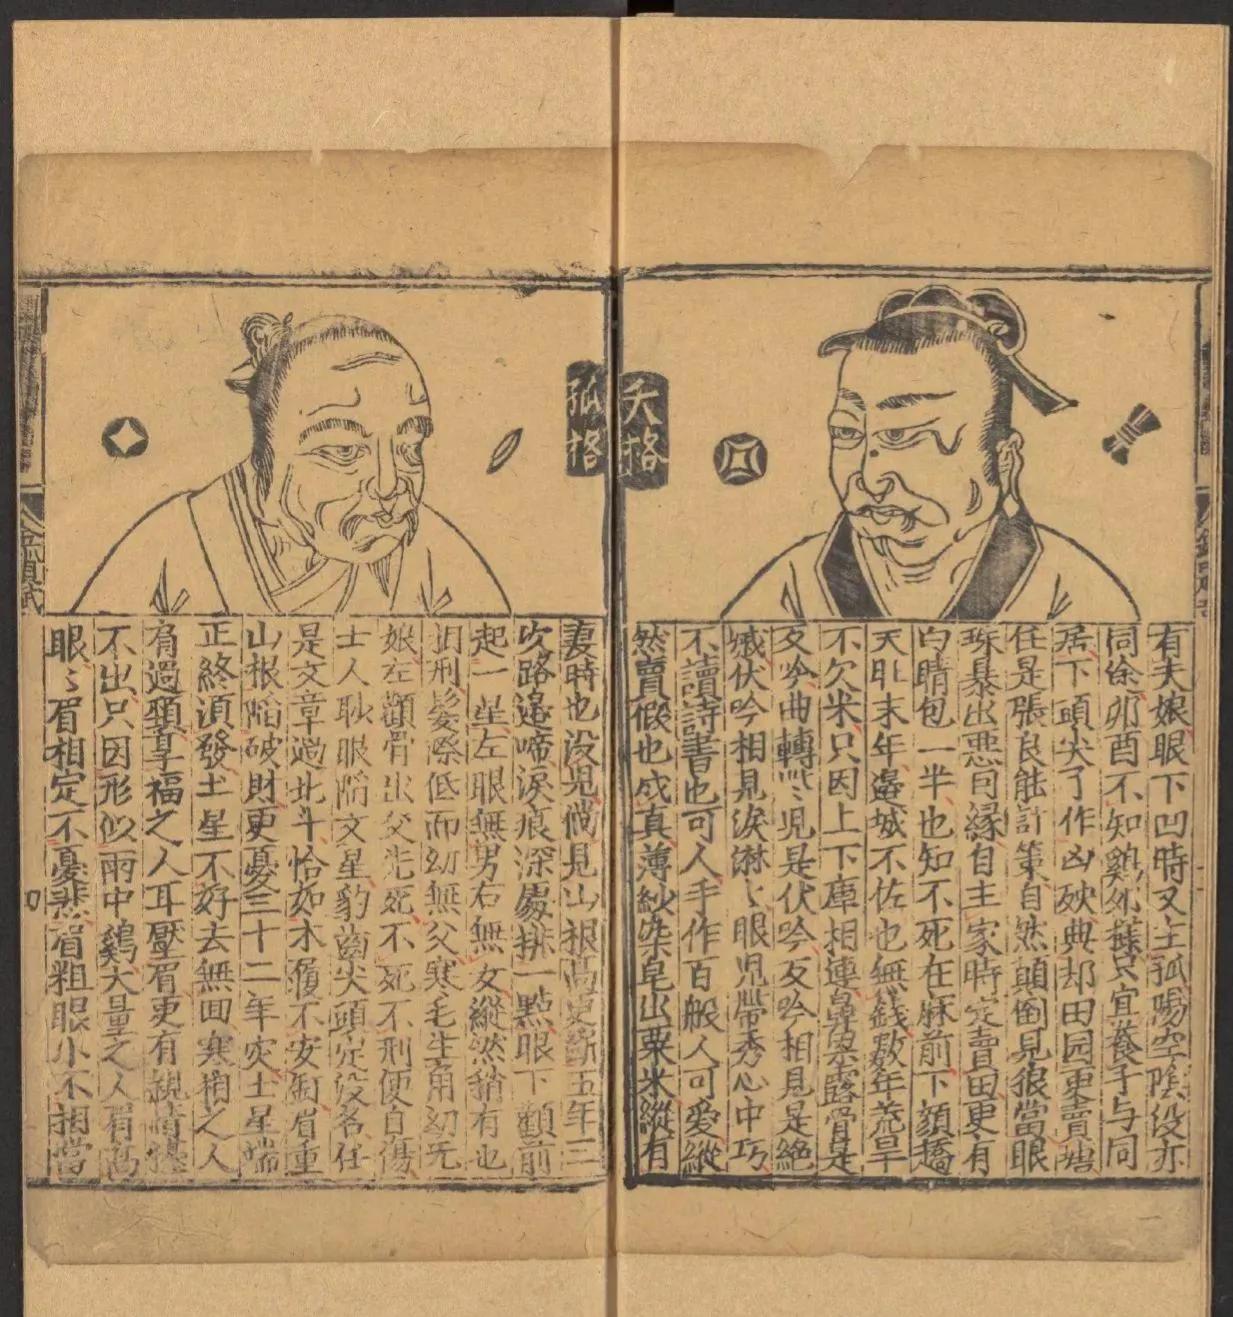 夭格
有夫娘眼下凹時又主孤陽空陰没亦
同途卯酉不知鷄死蘇只宜養子与同
居下頭尖了作凶殃典却田园更賣塘
任是張良能計策自然顛倒見狼當眼
珠暴出惡因緣自主家時定賣田更有
白睛包一半也知不死在麻前下頷橋
天 末年邉城不佐也無錢數年荒旱
不欠米只因上下庫相連鼻梁露骨是
反吟曲轉些児是伏吟反吟相見是絶
㓕伏吟相見淚淋〻眼児帶秀心中巧
不讀詩書也可人手作百般人可愛縱
然賣假也成真薄紗染皂出粟米縱有
孤格
妻時也没児倘見山根高更斷五年三
吹路邉啼淚痕深處排一點眼下顴前
起一星左眼無男右無女縱然稍有也
相刑髮際低而幼無父寒毛生角幼无
娘左顴骨出父先死不死不刑便自傷
士人耿眼陷文星豹齒尖頭定没名任
是文章過北斗恰如木履不安釘眉重
山根陷破財更憂三十二年灾土星端
正終須發土星不好去無回寒相之人
肩過頸享福之人耳壓眉更有親情擡
不出只因形似雨中鷄大量之人眉高
眼〻眉相定不憂悲眉粗眼小不相當